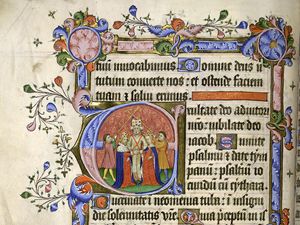 tuū invocabimus Domine deus vir
tutum converte nos: et ostende faciem
tuam et salvi erimus
Exultate deo adiutori
nīo: iubilate deo
iacob Sumite
psalmū et date tym
panū: psalteriū io
cundū cū cythara
Buccinate in neomenia tuba: in insigni
die solennitatis vr̄e Quia p̄ceptū in is